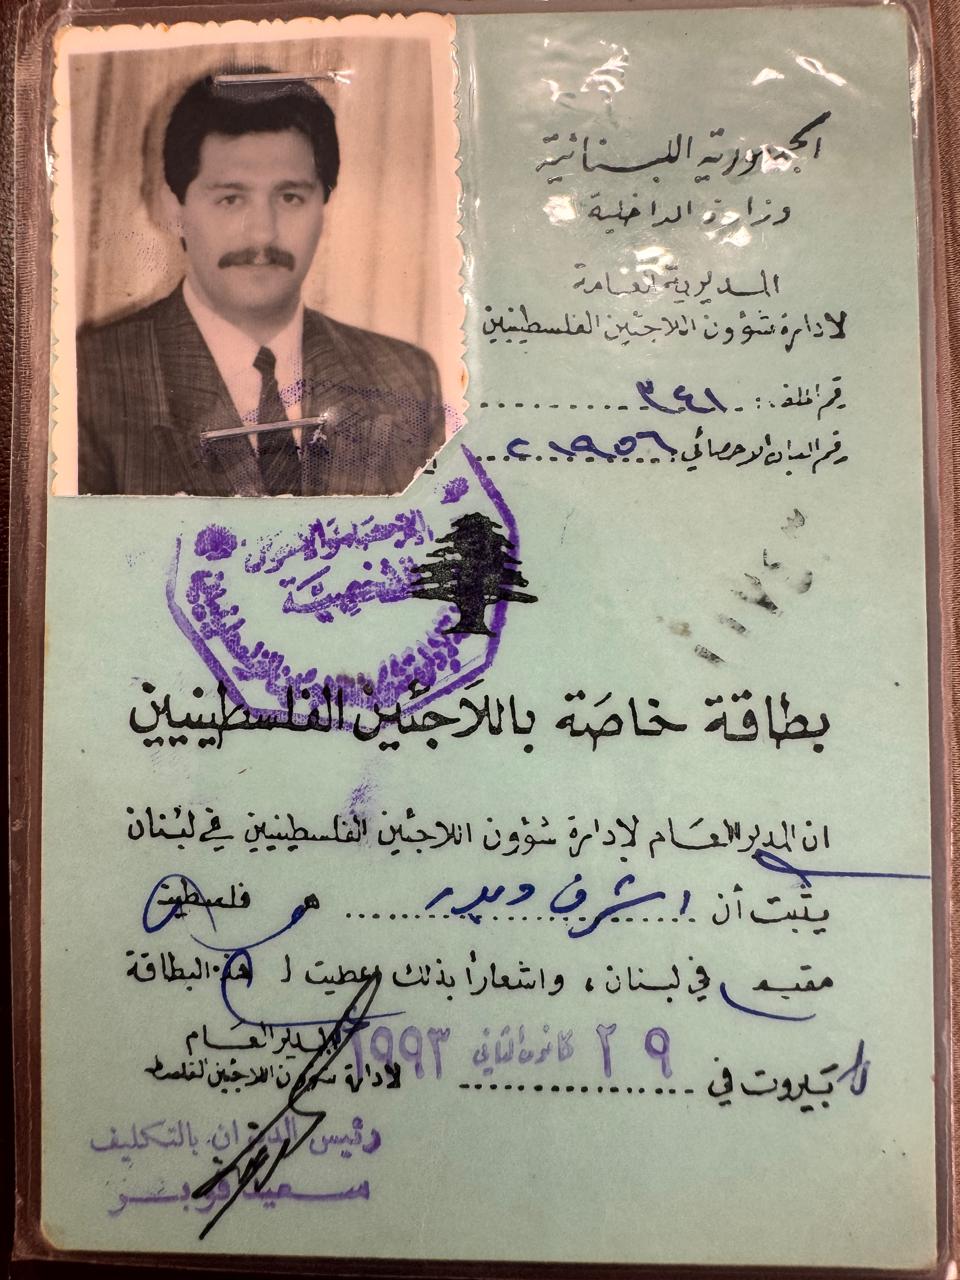 الجمهورية اللبنانية
وزارة الداخلية
المديرية العامة
لادارة شؤون اللاجئين الفلسطينيين
رقم الملف: ٣٤١
رقم البيان الاحصائي ٢١٩٥٦
الشخصية
بطاقة خاصة باللاجئين الفلسطينيين
ان المدير العام لادارة شؤون اللاجئين الفلسطينيين في لبنان
يثبت أن اشرف هو فلسطيني
مقيم في لبنان، واشعاراً بذلك اعطيت له هذه البطاقة
بيروت في ٢٩ كانون الثاني ١٩٩٣
المدير العام
لادارة شؤون اللاجئين الفلسط
رئيس الديوان بالتكليف
سعيد